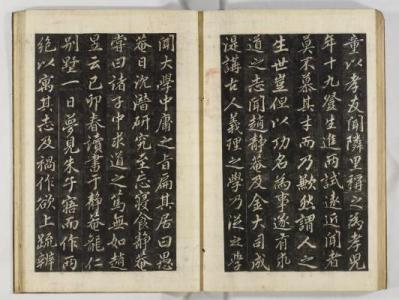 童以孝友聞隣里稱之為孝兒
年十九登生進兩試遂近聞者
莫不慕其才而乃歎然謂人之
生世豈但以功名為事遂有求
道之志聞趙靜菴及金大司成
湜講古人義理之學乃從之學
聞大學中庸之旨扁其居曰思
菴日沉潛研究至忘寢食靜菴
嘗曰諸子中求道之篤無如趙
昱云己卯春讀書于靜菴龍仁
別墅一日夢見朱子寤而作兩
絶以寓其志及禍作欲上疏辨